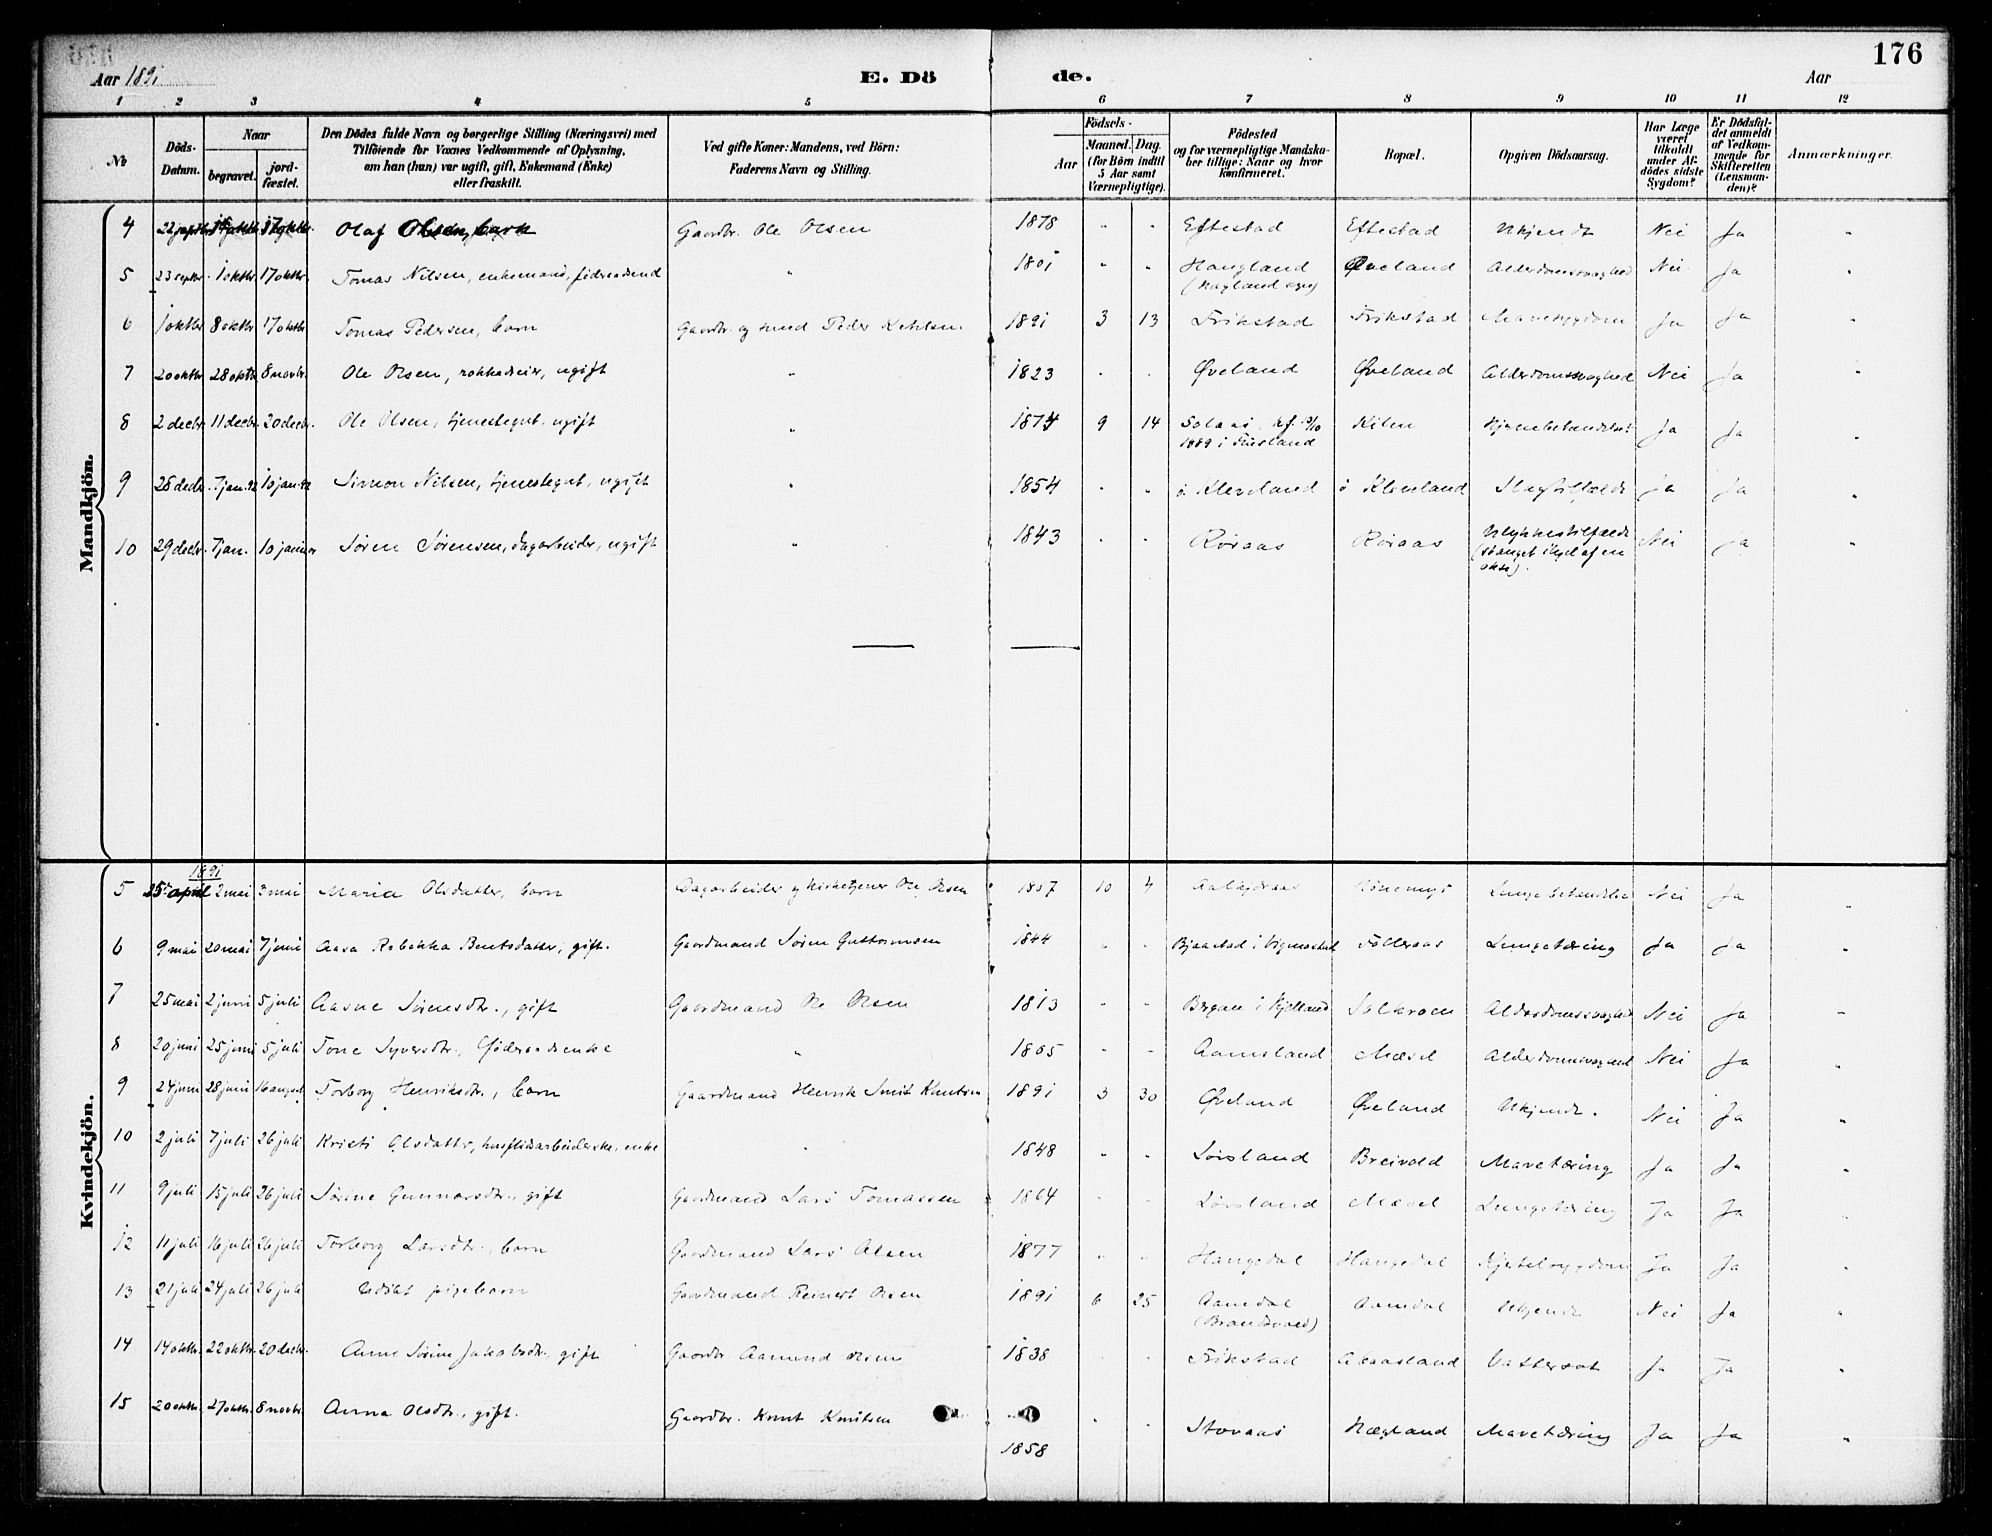 176
Aar 1891 E. Dö de. Aar
1 2 3 4 5 6 7 8 9 10 11 12
No
Döds-Datum.
Naar
begravet.
jordfæstet.
Den Dödes fulde Navn og borgerlige Stilling (Næringsvei) med
Tilföiende for Voxnes Vedkommende af Oplysning,
om han (hun) var ugift, gift, Enkemand (Enke)
eller fraskilt.
Ved gifte Koner: Mandens, ved Börn:
Faderens Navn og Stilling.
Födsels-
Aar
Maaned. Dag.
(for Börn indtil
5 Aar samt
Værnepligtige).
Födested
og for værnepligtige Mandskaber tillige: Naar og hvor
konfirmeret.
Bopæl.
Opgiven Dödsaarsag.
Har Læge
været
tilkaldt
under Afdödes sidste
Sygdom?
Er Dödsfaldet anmeldt
af Vedkommende for
Skifteretten
(Lensmanden)?
Anmærkninger.
Mandkjön.
4 Olaf Olsen, barn Gaardbr. Ole Olsen 1878 " " Eftestad Eftestad Ukjendt Nei Ja "
5 23 septbr. 1 oktbr. 17 oktbr. Tomas Nilsen, enkemand, föderaadsmand " 1801 " " Haugland Øveland Alderdomssvaghed Nei Ja "
6 1 oktbr 8 oktbr 17 oktbr Tomas Pedersen, barn Gaardbr. og smed Peder 1891 3 13 Frikstad Frikstad Mavesygdom Ja Ja "
7 20 oktbr 28 oktbr 8 novbr. Ole Olsen, rokkedreier, ugift " 1823 " " Øveland Øveland Alderdomssvaghed Nei Ja "
8 2 decbr. 11 decbr. 20 decbr. Ole Olsen, tjenestegut, ugift " 1874 9 14 Solaas, kf.
1889 i Finsland Kilen Ja Ja "
9 28 decbr. 7 jan. 92 10 jan. 92 Simon Nilsen, tjenestegut, ugift " 1854 " " ö. Kleveland ö Kleveland Slagtilfælde Ja Ja "
10 29 decbr. 7 jan. 10 januar Søren Sørensen, dagarbeider, ugift " 1843 " " Røiaas Røiaas Ulykkestilfælde
(stanget ihjel af en
okse). Nei Ja "
Kvindekjön.
1891
5 25 april 2 mai 3 mai Maria Olsdatter, barn Dagarbeider og kirketjener Ole Olsen 10 4 Nei Ja "
6 9 mai 20 mai 7 juni Aasa Rebekka Bentsdatter, gift. Gaardmand Søren Guttormsen 1844 " " Lungetæring Ja Ja "
7 25 mai 2 juni 5 juli Aasne Sørensdtr., gift Gaardmand Ole Olsen 1813 " " Alderdomssvaghed Nei Ja "
8 20 juni 25 juni 5 juli Tone Syversdtr., Föderaadsenke " 1805 " " Aamsland Mæsel Alderdomssvaghed Nei Ja "
9 24 juni 28 juni 16 august Torborg Henriksdtr., barn Gaardmand Henrik Smit Knutsen 1891 3 30 Øveland Øveland Ukjendt. Nei Ja "
10 2 juli 7 juli 26 juli Kristi Olsdatter, husflidsarbeiderske, enke " 1848 " " Lørsland Breivold Mavetæring Ja Ja "
11 9 juli 15 juli 26 juli Sørine Gunnarsdtr., gift Gaardmand Lars Tomassen 1864 " " Lørsland Mæsel Lungetæring Ja Ja "
12 11 juli 16 juli 26 juli Torborg Larsdtr., barn Gaardmand Lars Olsen 1877 " " Haugedal Haugedal Kjertelsygdom Ja Ja "
13 21 juli 24 juli 26 juli Udöbt pigebarn Gaardmand Reinert Olsen 1891 6 25 Aamdal
(Brandsvold) Aamdal Ukjendt Nei Ja "
14 14 oktbr. 22 oktbr. 20 decbr. Anne Sørine Jakobsdtr., gift Gaardbr Aamund Olsen 1838 " " Frikstad Abaasland Vattersot Ja Ja "
15 20 oktbr. 27 oktbr. 8 novbr. Anna Olsdtr., gift. Gaardbr. Knut Knutsen 1858 " " Stovaas Hægland Mavetæring Ja Ja "